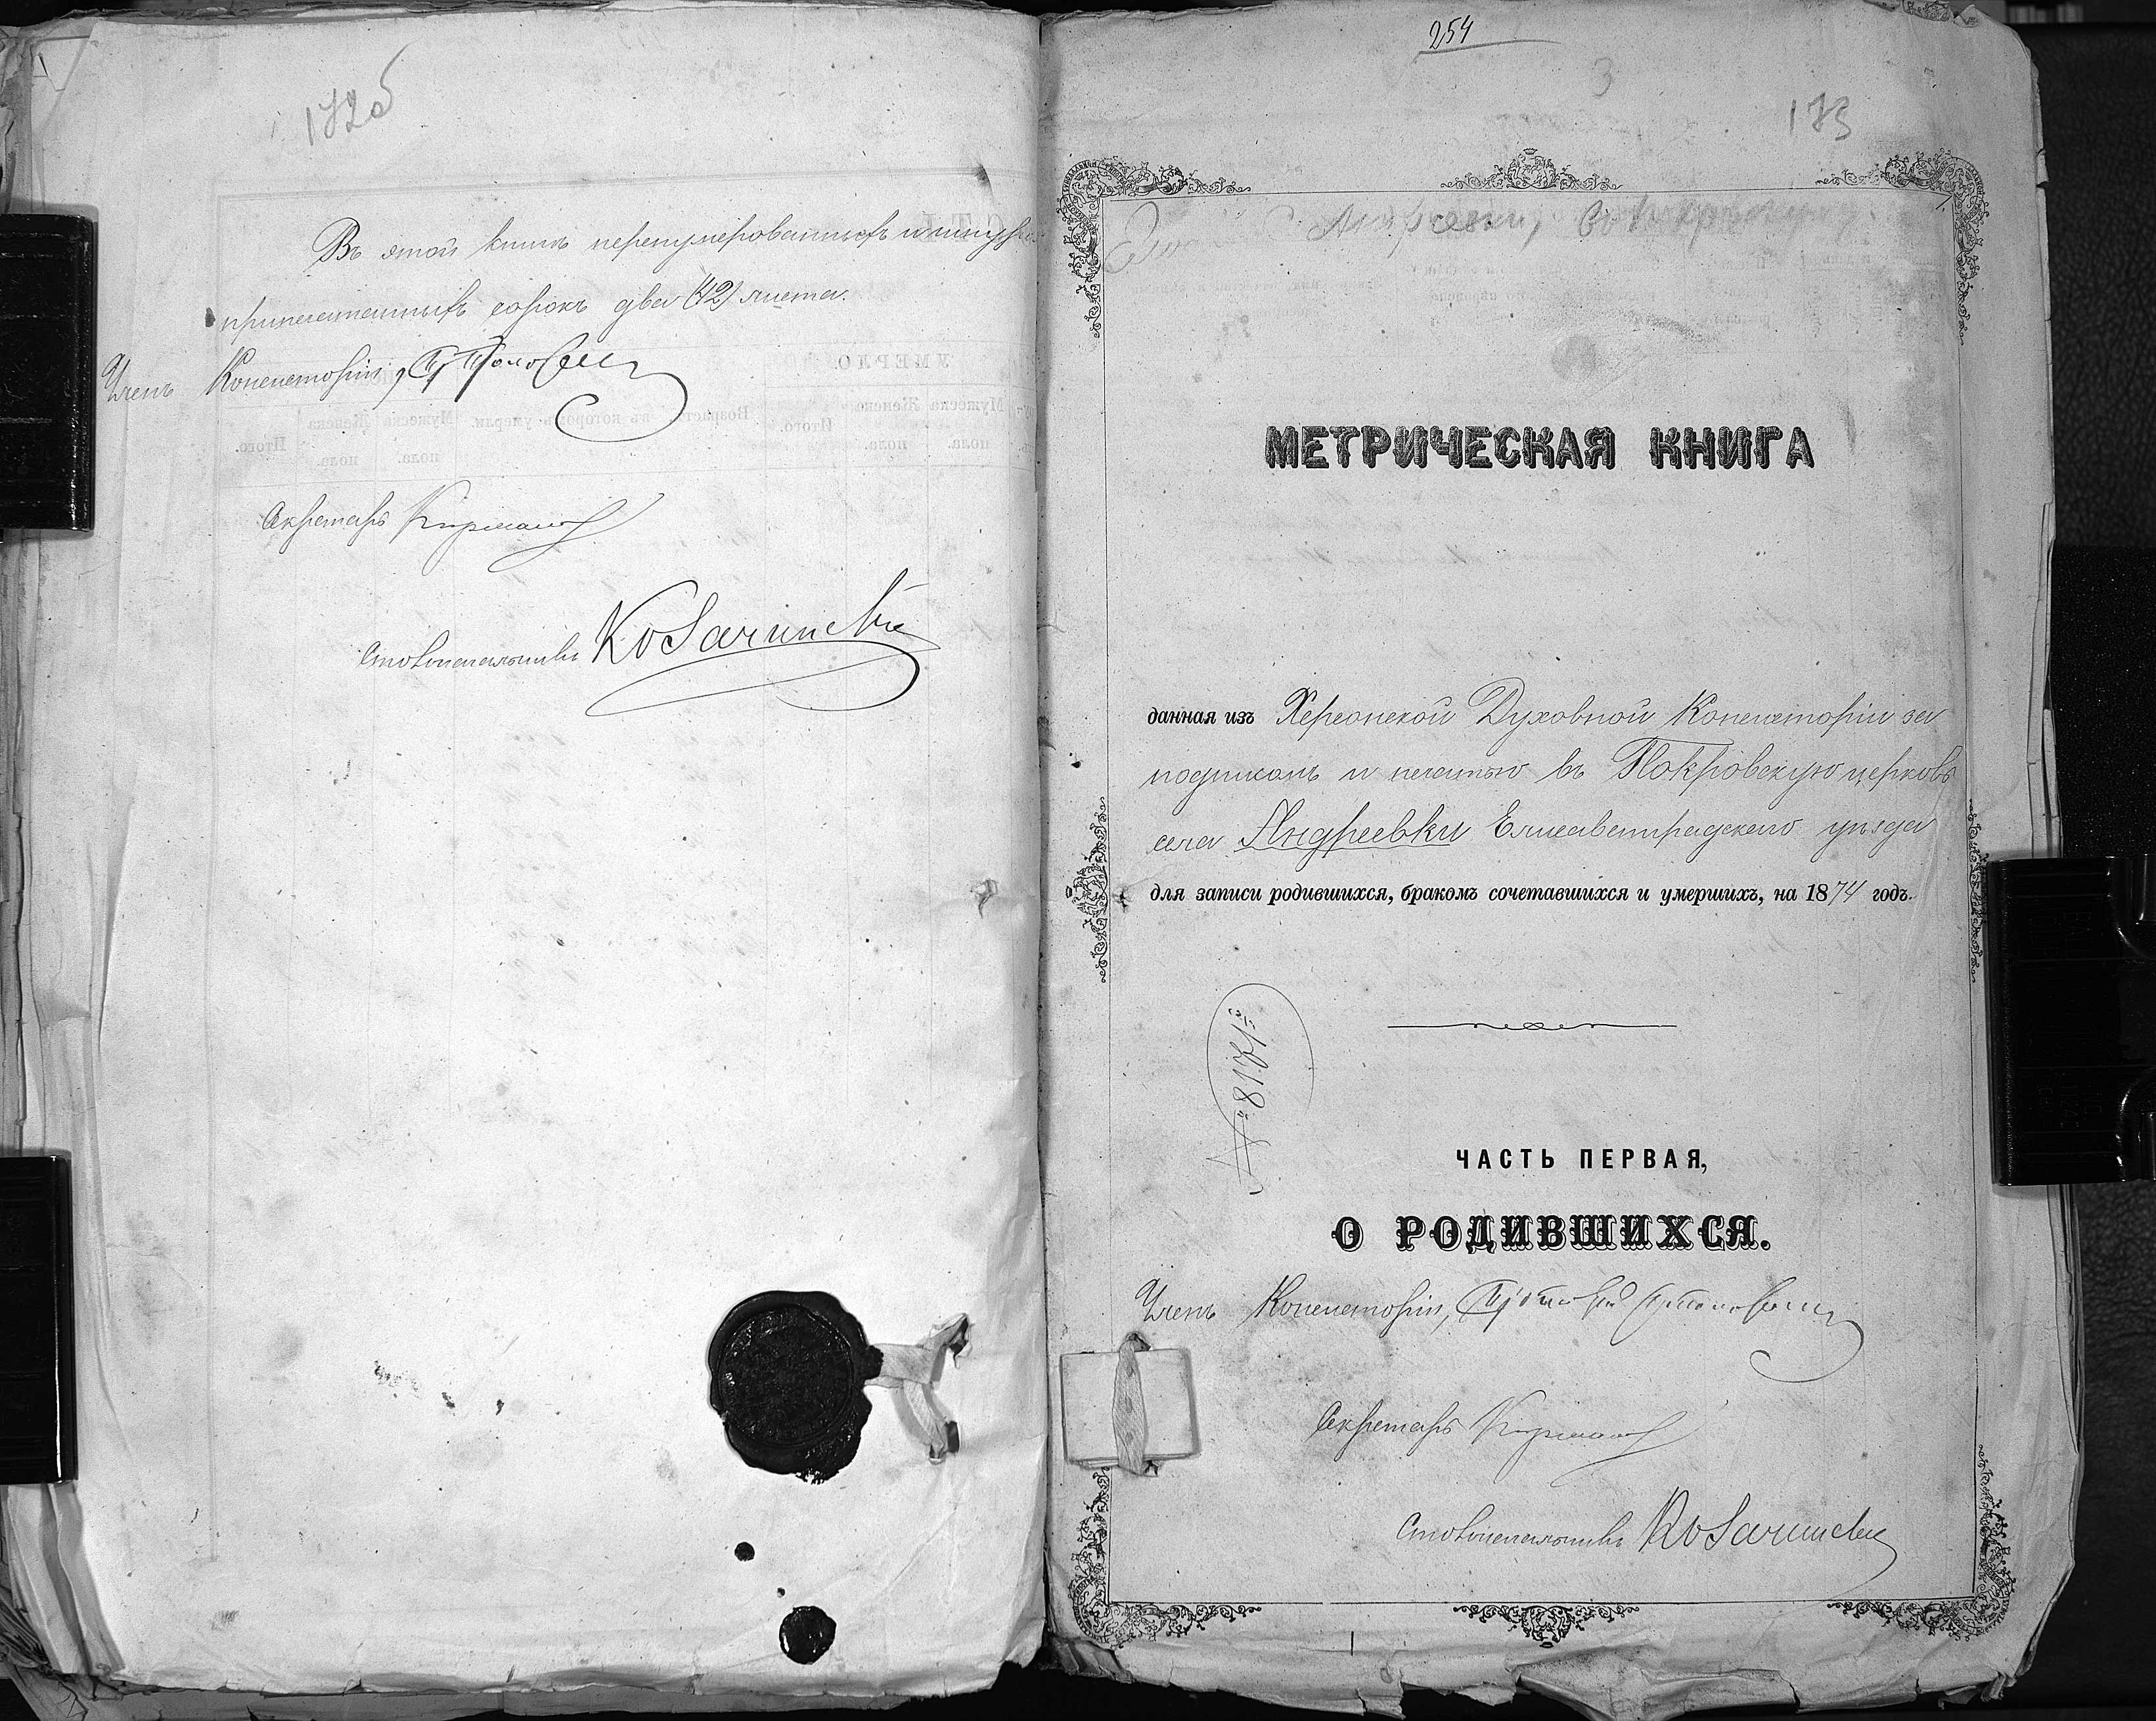 172об
Въ этой книгѣ перенумерованныхъ и шнуро
припечатанныхъ сорокъ два (42) листа.
Членъ Консисторіи,
Секретарь
Столоначальникъ
254
3
173
МЕТРИЧЕСКАЯ КНИГА
данная изъ Херсонской Духовной Консисторіи за
подписомъ и печатью въ Покровскую церковь
села Андреевки Елисаветградскаго уѣзда
для записи родившихся, бракомъ сочетавшихся и умершихъ, на 1874 годъ.
ЧАСТЬ ПЕРВАЯ,
О РОДИВШИХСЯ.
Членъ Консисторіи,
Секретарь
Столоначальникъ